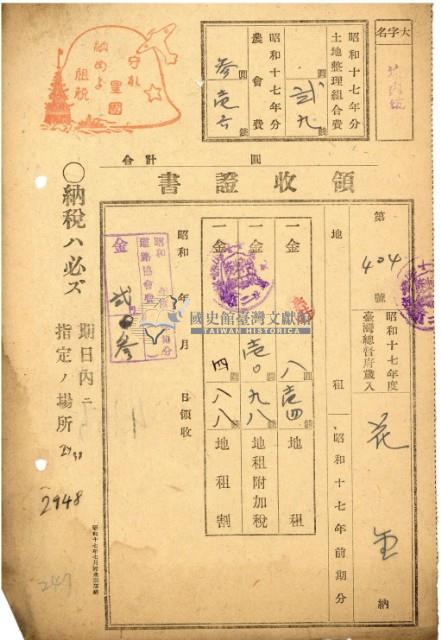 大字名
昭和十七年分
土地整理組合費
圓
貳九
錢
昭和十七年分
農會費
圓
參壱六
錢
守れ
皇國
納めよ
租税
合計 圓
領收證書
第 404 號
昭和十七年度
臺灣總督府歳入
花
納
地租
昭和十七年前期分
一金
八壱四
地租
一金
壱〇九八
地租附加税
一金
四八八
地租割
昭和 年 月 日領收
昭和 年 期分
道路協會費
金
國史館臺灣文獻館
TAIWAN HISTORICA
〇納税ハ必ズ
期日内ニ
指定ノ場所
2948
247